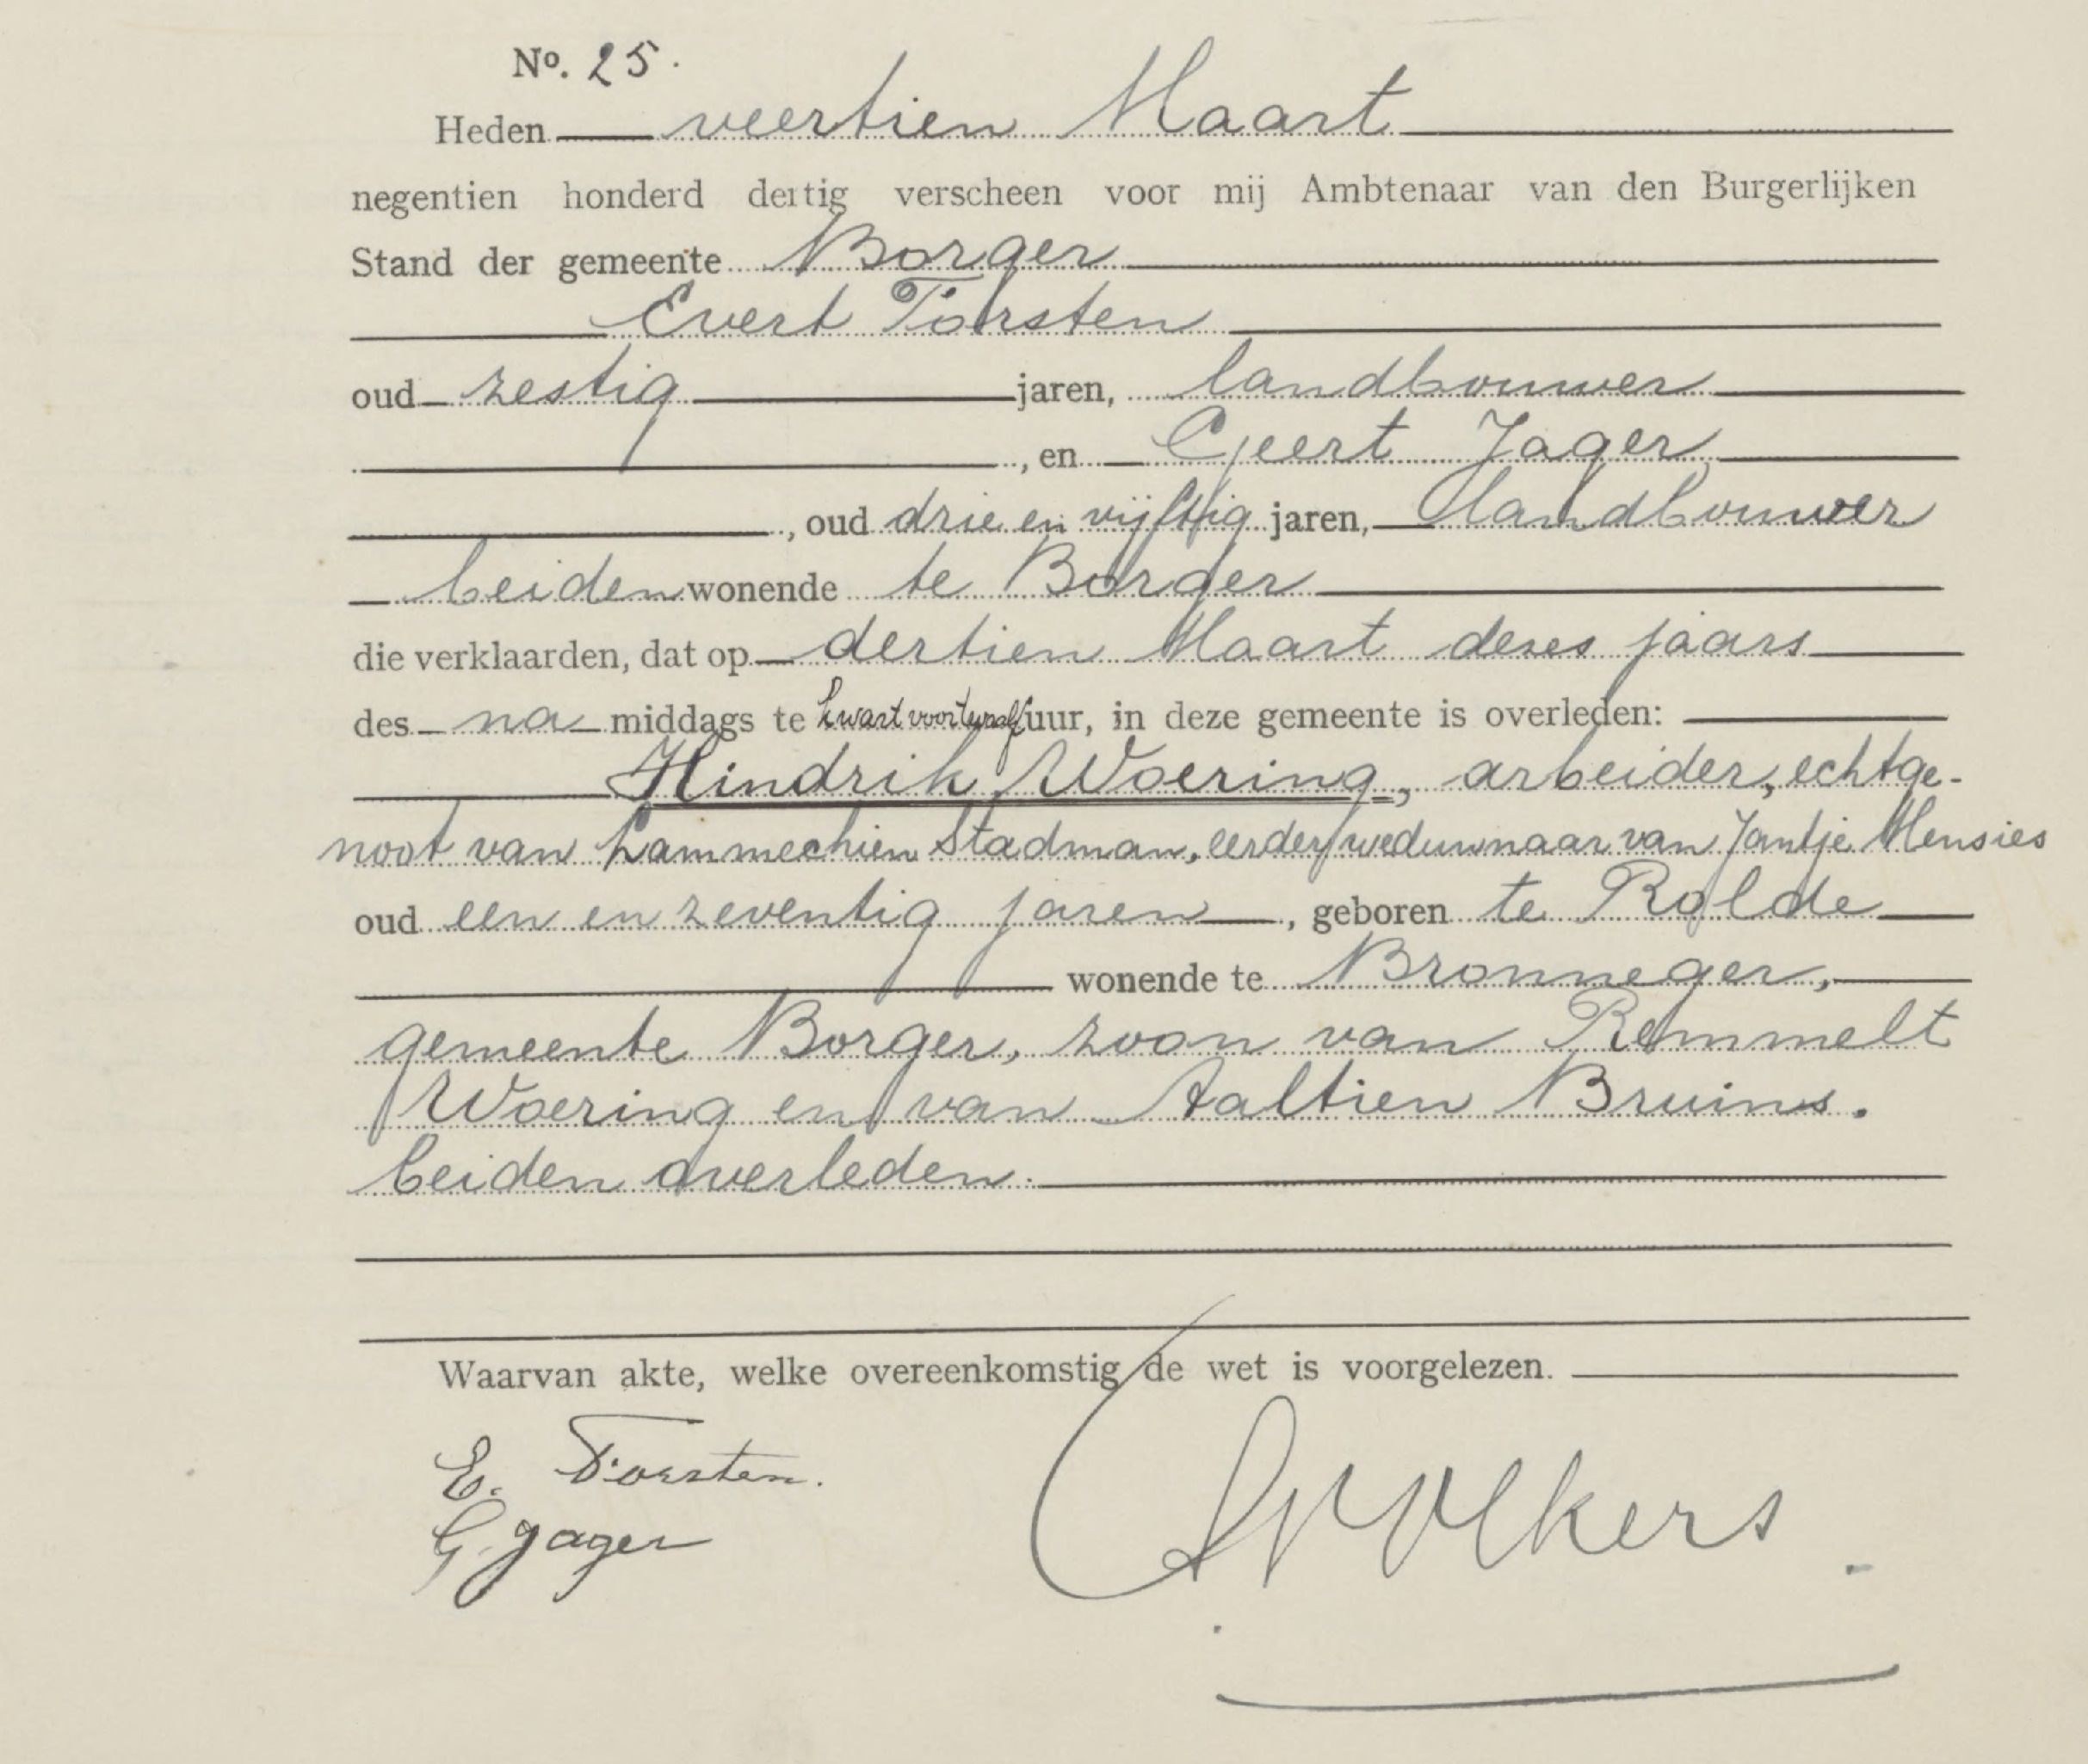 No. 25.
Heden veertien Maart
negentien honderd dertig verscheen voor mij Ambtenaar van den Burgerlijken
Stand der gemeente Borger
Evert Torsten
oud zestig jaren, landbouwer
, en Geert Jager
, oud drie en vijftig jaren, landbouwer
beiden wonende te Borger
die verklaarden, dat op dertien Maart dezes jaars
des na middags te kwart voor twaalf uur, in deze gemeente is overleden:
Hindrik Woering, arbeider, echtge-
noot van Lammechien Stadman, eerder weduwnaar van Jantje Mensies
oud een en zeventig jaren, geboren te Rolde
wonende te Bronneger,
gemeente Borger, zoon van Remmelt
Woering en van Aaltien Bruins.
beiden overleden.
Waarvan akte, welke overeenkomstig de wet is voorgelezen.
E. Torsten.
G. Jager